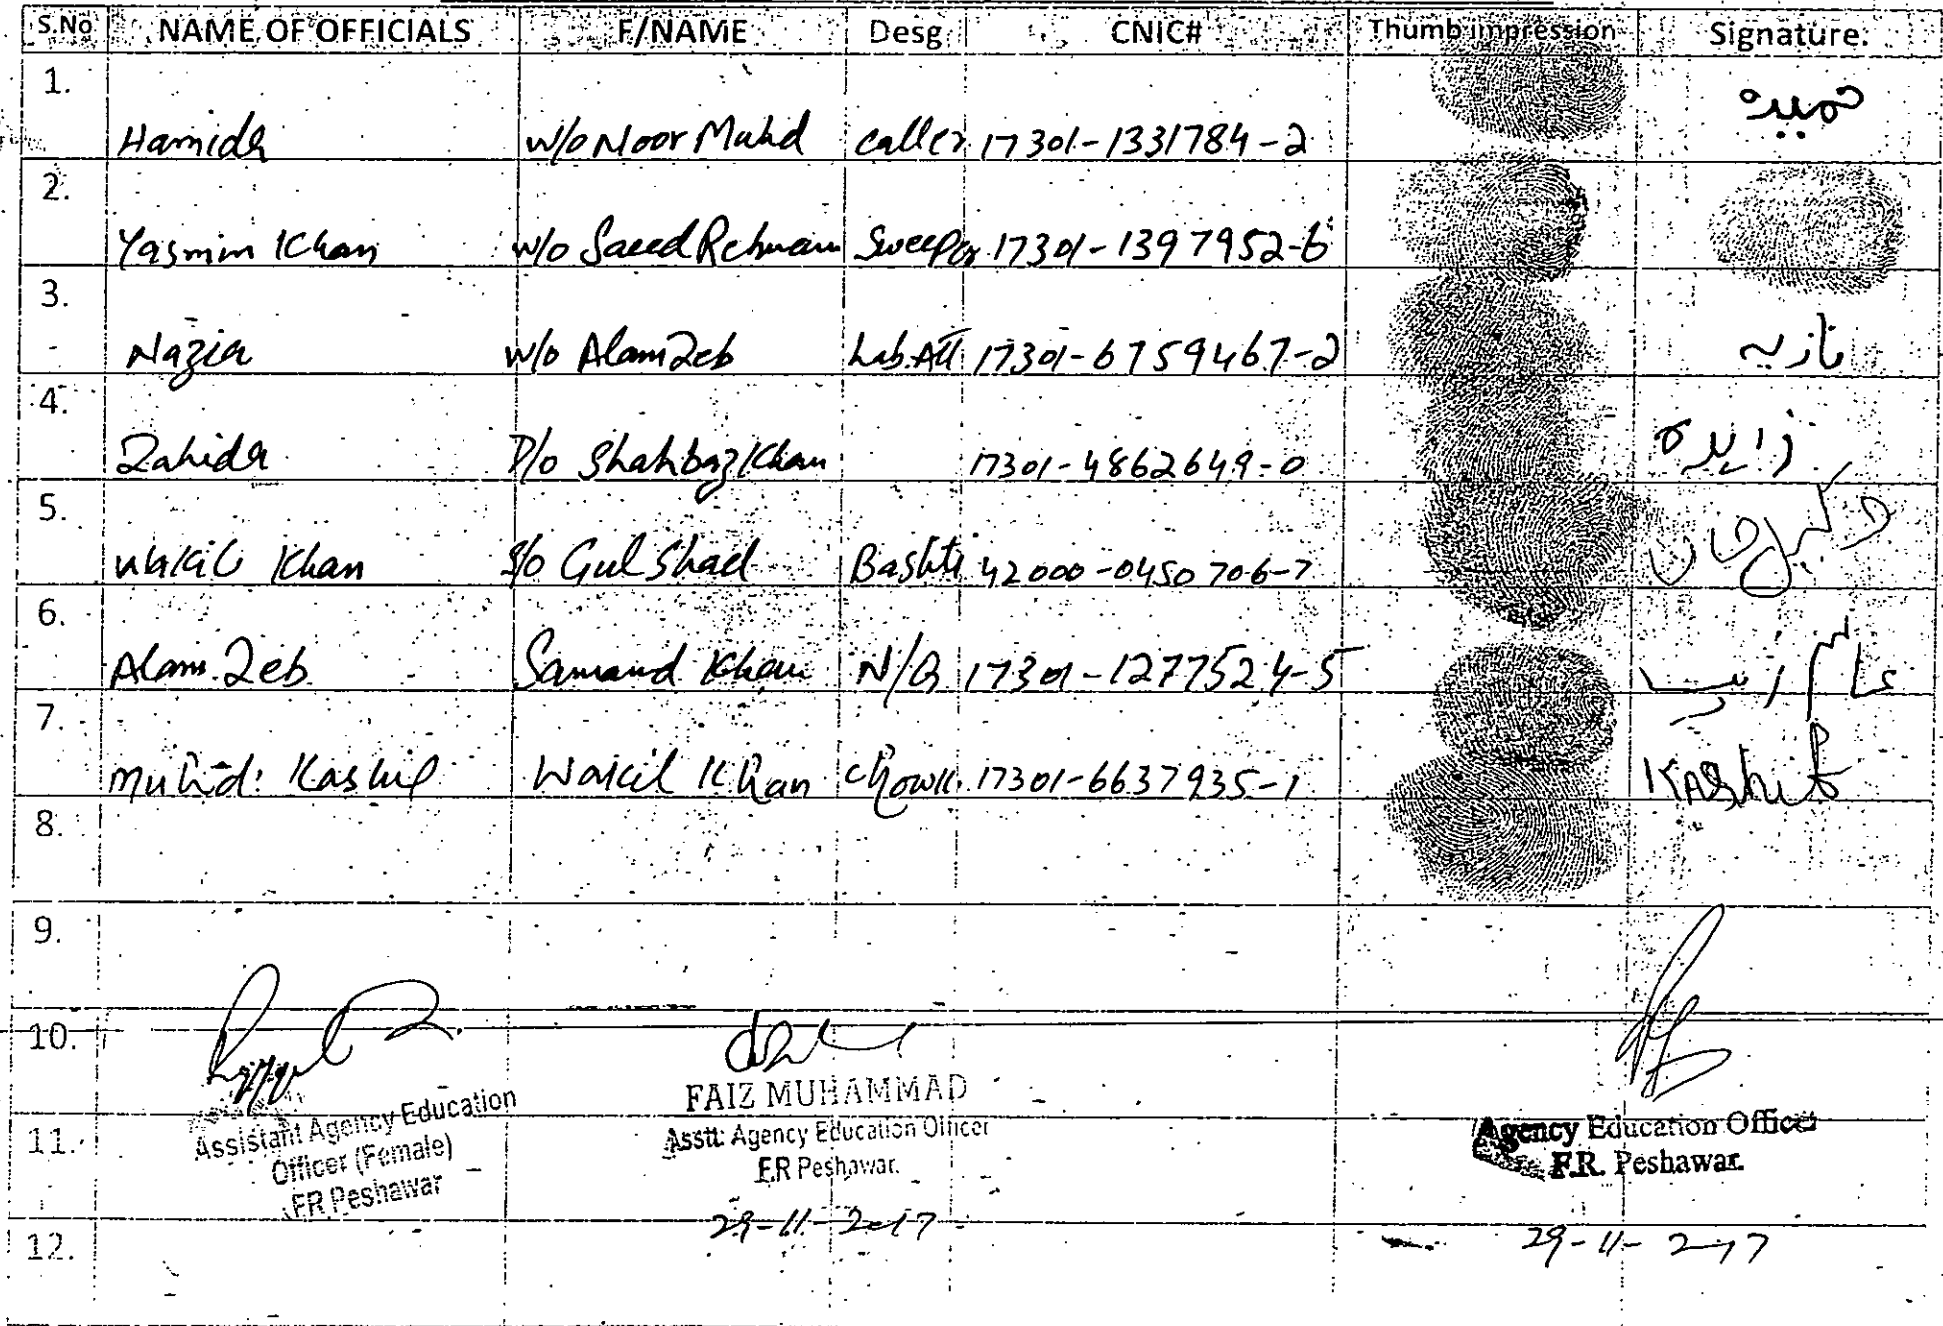 S.No NAME OF OFFICIALS F/NAME Desg CNIC# Thumb impression Signature.
1. Hamida w/o Noor Muhd caller 17301-1331784-2 حمیدہ
2. Yasmin Khan w/o Saeed Rehman Sweeper 17301-1397952-6
3. Nazia w/o Alam Zeb Lab.Att 17301-6759467-2 نازیہ
4. Zahida D/o Shahbaz Khan 17301-4862649-0 زاہدہ
5. Wakil Khan S/o Gul Shad Bashti 42000-0450706-7 وکیل خان
6. Alam Zeb Samand Khan N/Q 17301-1277524-5 عالم زیب
7. Muhd: Kashif Wakil Khan Chowk. 17301-6637935-1 Kashif
8.
9.
10.
11.
12.
Assistant Agency Education
Officer (Female)
FR Peshawar
FAIZ MUHAMMAD
Asstt: Agency Education Officer
F.R Peshawar.
29-11-2017
Agency Education Officer
F.R. Peshawar.
29-11-2017